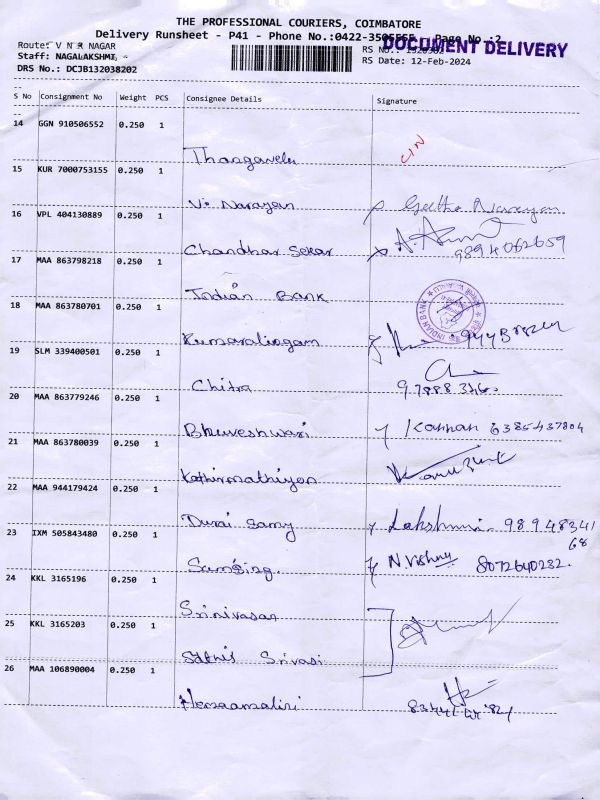 THE PROFESSIONAL COURIERS, COIMBATORE
Delivery Runsheet - P41 - Phone No.:0422- Page No.:2
DOCUMENT DELIVERY
Route: V N R NAGAR
Staff: NAGALAKSHMI
RS No.:
DRS No.: DCJB132038202
RS Date: 12-Feb-2024
S No Consignment No Weight PCS Consignee Details Signature
14 GGN 910506552 0.250 1
Thangavelu
15 KUR 7000753155 0.250 1
V. Narayan Geetha Narayan
16 VPL 404130889 0.250 1
Chandhar Sekar 9894062659
17 MAA 863798218 0.250 1
Indian Bank INDIAN BANK
18 MAA 863780701 0.250 1
19 SLM 339400501 0.250 1
Chitra
20 MAA 863779246 0.250 1
Bhuveshwari Kannan 6385437804
21 MAA 863780039 0.250 1
22 MAA 944179424 0.250 1
Durai Samy Lakshmi. 98948341
68
23 IXM 505843480 0.250 1
N Vishnu 8072640232.
24 KKL 3165196 0.250 1
Srinivasan
25 KKL 3165203 0.250 1
26 MAA 106890004 0.250 1